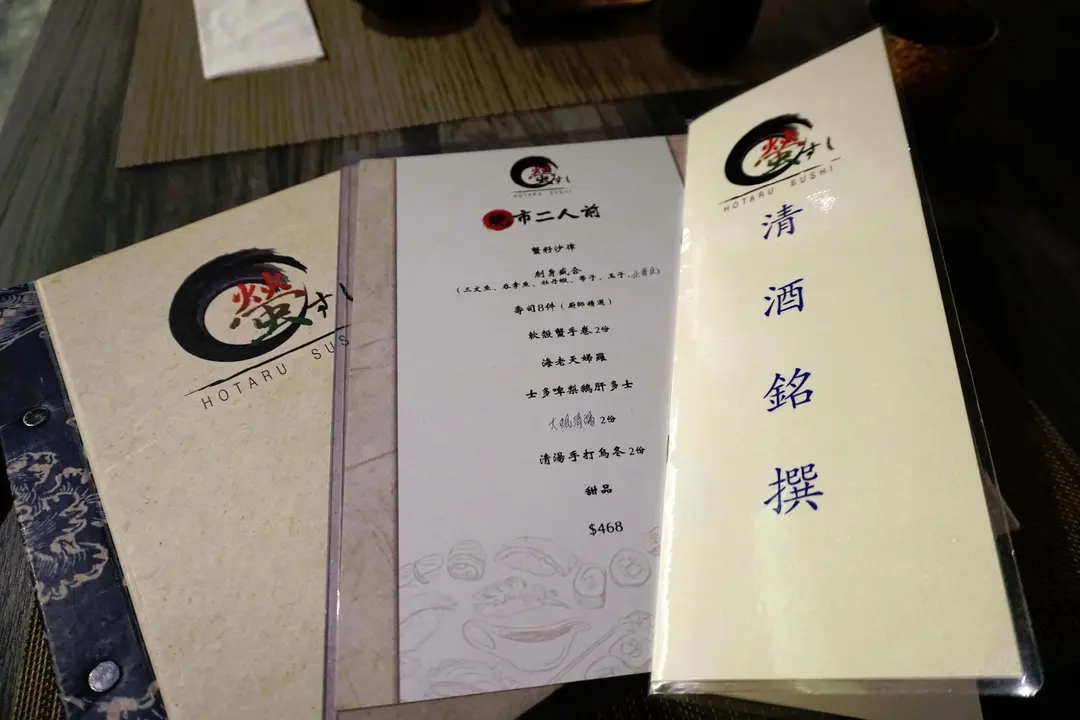 螢すし
HOTARU SUSHI
螢すし
HOTARU SUSHI
晚市二人前
蟹籽沙律
刺身盛合
(三文魚、吞拿魚、牡丹蝦、帶子、玉子、
壽司8件（廚師精選）
軟殼蟹手卷2份
海老天婦羅
士多啤梨鵝肝多士
2份
清湯手打烏冬2份
甜品
$468
螢すし
HOTARU SUSHI
清酒銘撰